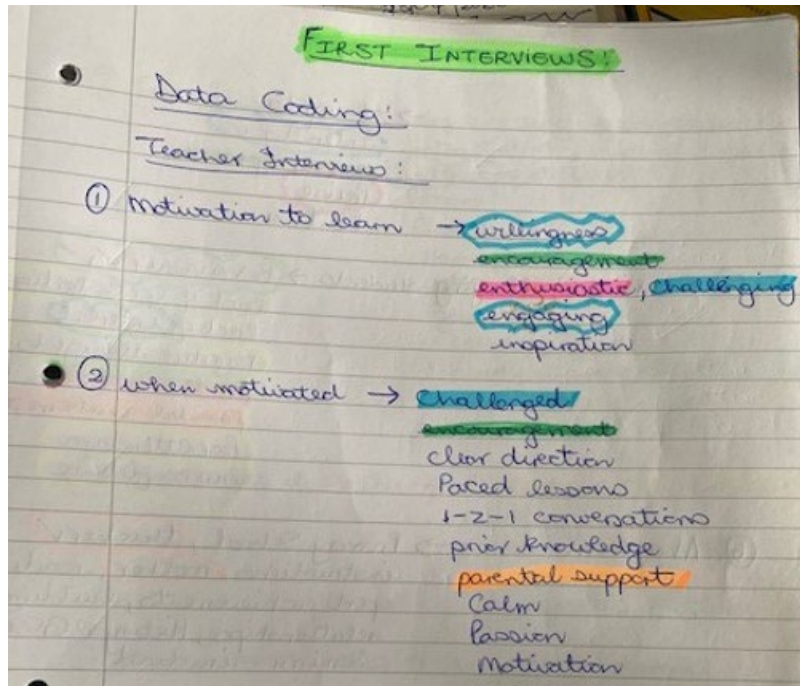 FIRST INTERVIEWS:
Data Coding:
Teacher Interviews:
① Motivation to learn → willingness
encouragement
enthusiastic, challenging
engaging
inspiration
② when motivated → challenged
encouragement
clear direction
Paced lessons
1-2-1 conversations
prior knowledge
parental support
Calm
Passion
Motivation